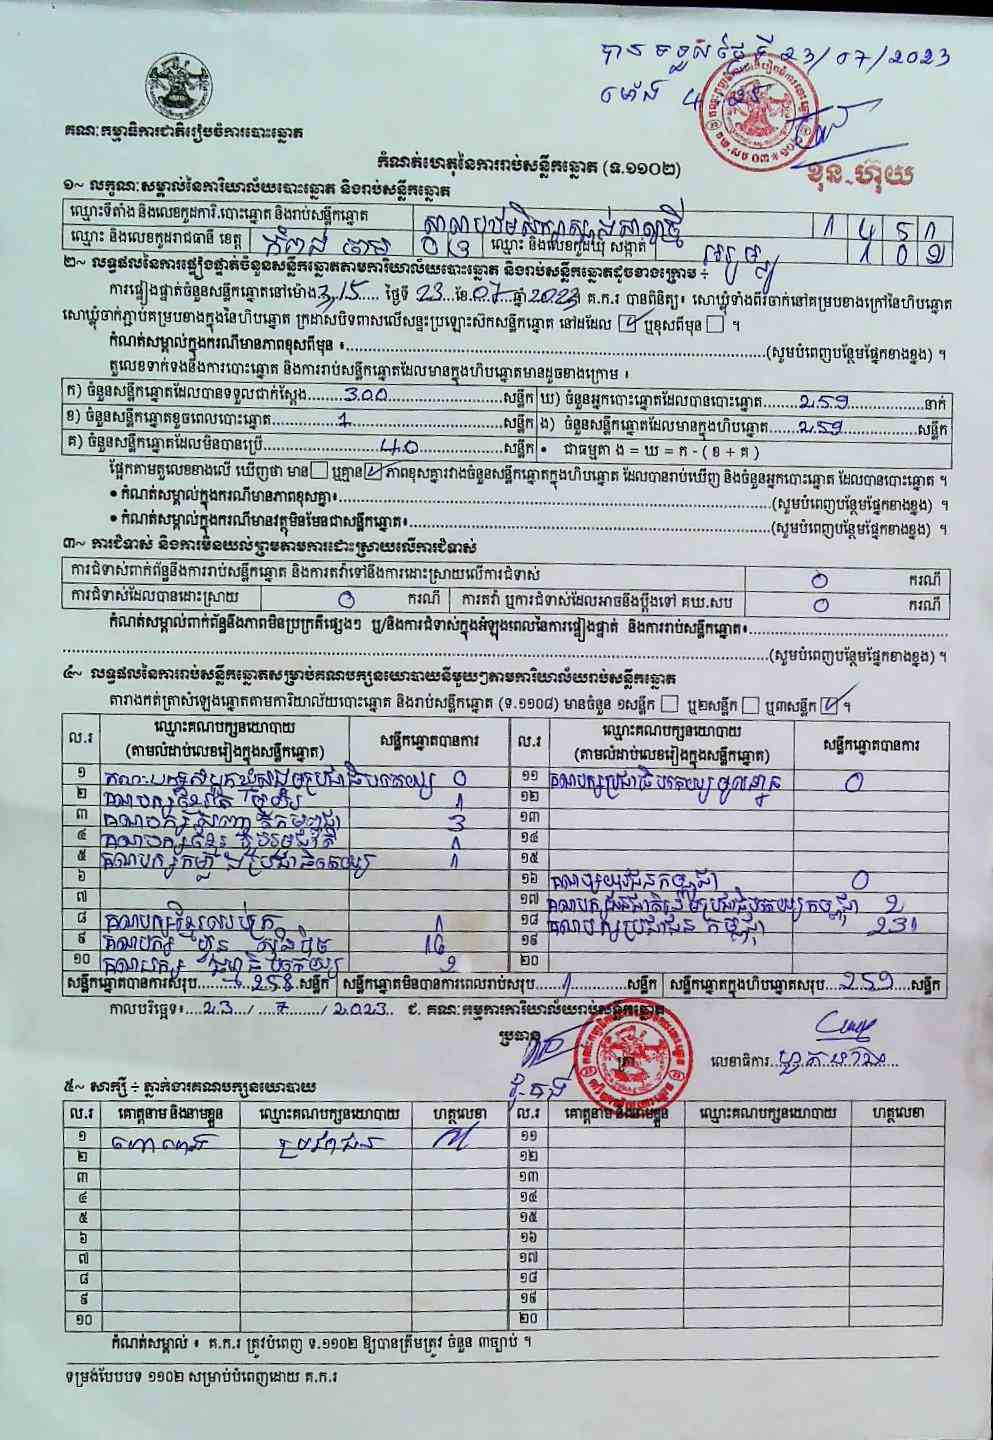 បានទទួលថ្ងៃទី 23/07/2023
ម៉ោង
គណៈកម្មាធិការជាតិរៀបចំការបោះឆ្នោត
ខុន ហ៊ុយ
កំណត់ហេតុនៃការរាប់សន្លឹកឆ្នោត (ទ.១១០២)
១~ លក្ខណៈសម្គាល់នៃការិយាល័យបោះឆ្នោត និងរាប់សន្លឹកឆ្នោត
ឈ្មោះទីតាំង និងលេខកូដការិ.បោះឆ្នោត និងរាប់សន្លឹកឆ្នោត
ឈ្មោះ និងលេខកូដរាជធានី ខេត្ត កំពង់ចាម 03 ឈ្មោះ និងលេខកូដឃុំ សង្កាត់
២~ លទ្ធផលនៃការផ្ទៀងផ្ទាត់ចំនួនសន្លឹកឆ្នោតតាមការិយាល័យបោះឆ្នោត និងរាប់សន្លឹកឆ្នោតដូចខាងក្រោម ÷
ការផ្ទៀងផ្ទាត់ចំនួនសន្លឹកឆ្នោតនៅម៉ោង 3,15 ថ្ងៃទី 23 ខែ 07 ឆ្នាំ 2023 គ.ក.រ បានពិនិត្យ៖ សោឃ្លុំទាំងពីរចាក់នៅគម្របខាងក្រៅនៃហិបឆ្នោត
សោឃ្លុំចាក់ភ្ជាប់គម្របខាងក្នុងនៃហិបឆ្នោត ក្រដាសបិទពាសលើសន្ទះប្រឡោះស៊កសន្លឹកឆ្នោត នៅដដែល ☑ ឬខុសពីមុន ☐ ។
កំណត់សម្គាល់ក្នុងករណីមានភាពខុសពីមុន ៖ (សូមបំពេញបន្ថែមផ្នែកខាងខ្នង) ។
តួលេខទាក់ទងនឹងការបោះឆ្នោត និងការរាប់សន្លឹកឆ្នោតដែលមានក្នុងហិបឆ្នោតមានដូចខាងក្រោម ៖
ក) ចំនួនសន្លឹកឆ្នោតដែលបានទទួលជាក់ស្តែង 300 សន្លឹក ឃ) ចំនួនអ្នកបោះឆ្នោតដែលបានបោះឆ្នោត 259 នាក់
ខ) ចំនួនសន្លឹកឆ្នោតខូចពេលបោះឆ្នោត 1 សន្លឹក ង) ចំនួនសន្លឹកឆ្នោតដែលមានក្នុងហិបឆ្នោត 259 សន្លឹក
គ) ចំនួនសន្លឹកឆ្នោតដែលមិនបានប្រើ 40 សន្លឹក • ជាធម្មតា ង = ឃ = ក - ( ខ + គ )
ផ្អែកតាមតួលេខខាងលើ ឃើញថា មាន ☐ ឬគ្មាន ☑ ភាពខុសគ្នារវាងចំនួនសន្លឹកឆ្នោតក្នុងហិបឆ្នោត ដែលបានរាប់ឃើញ និងចំនួនអ្នកបោះឆ្នោត ដែលបានបោះឆ្នោត ។
• កំណត់សម្គាល់ក្នុងករណីមានភាពខុសគ្នា៖ (សូមបំពេញបន្ថែមផ្នែកខាងខ្នង) ។
• កំណត់សម្គាល់ក្នុងករណីមានវត្ថុមិនមែនជាសន្លឹកឆ្នោត៖ (សូមបំពេញបន្ថែមផ្នែកខាងខ្នង) ។
៣~ ការជំទាស់ និងការមិនយល់ព្រមតាមការដោះស្រាយលើការជំទាស់
ការជំទាស់ពាក់ព័ន្ធនឹងការរាប់សន្លឹកឆ្នោត និងការតវ៉ាទៅនឹងការដោះស្រាយលើការជំទាស់ 0 ករណី
ការជំទាស់ដែលបានដោះស្រាយ 0 ករណី ការតវ៉ា ឬការជំទាស់ដែលអាចនឹងប្តឹងទៅ គឃ.សប 0 ករណី
កំណត់សម្គាល់ពាក់ព័ន្ធនឹងភាពមិនប្រក្រតីផ្សេងៗ ឬ/និងការជំទាស់ក្នុងអំឡុងពេលនៃការផ្ទៀងផ្ទាត់ និងការរាប់សន្លឹកឆ្នោត៖
(សូមបំពេញបន្ថែមផ្នែកខាងខ្នង) ។
៤~ លទ្ធផលនៃការរាប់សន្លឹកឆ្នោតសម្រាប់គណបក្សនយោបាយនីមួយៗតាមការិយាល័យរាប់សន្លឹកឆ្នោត
តារាងកត់ត្រាសំឡេងឆ្នោតតាមការិយាល័យបោះឆ្នោត និងរាប់សន្លឹកឆ្នោត (ទ.១១០៨) មានចំនួន ១សន្លឹក ☐ ឬ២សន្លឹក ☐ ឬ៣សន្លឹក ☑ ។
ល.រ ឈ្មោះគណបក្សនយោបាយ (តាមលំដាប់លេខរៀងក្នុងសន្លឹកឆ្នោត) សន្លឹកឆ្នោតបានការ ល.រ ឈ្មោះគណបក្សនយោបាយ (តាមលំដាប់លេខរៀងក្នុងសន្លឹកឆ្នោត) សន្លឹកឆ្នោតបានការ
១ 0 ១១ គណបក្សប្រជាធិបតេយ្យមូលដ្ឋាន 0
២ គណបក្សខ្មែរតែមួយ 1 ១២
៣ គណបក្សសញ្ជាតិកម្ពុជា 3 ១៣
៤ គណបក្សខ្មែររួបរួមជាតិ 1 ១៤
៥ គណបក្សកម្លាំងប្រជាធិបតេយ្យ 1 ១៥
៦ ១៦ គណបក្សយុវជនកម្ពុជា 0
៧ ១៧ 2
៨ គណបក្សខ្មែរឈប់ក្រ 1 ១៨ គណបក្សប្រជាជនកម្ពុជា 231
៩ គណបក្សហ៊្វុនស៊ិនប៉ិច 16 ១៩
១០ គណបក្សធម្មាធិបតេយ្យ 2 ២០
សន្លឹកឆ្នោតបានការសរុប 258 សន្លឹក សន្លឹកឆ្នោតមិនបានការពេលរាប់សរុប 1 សន្លឹក សន្លឹកឆ្នោតក្នុងហិបឆ្នោតសរុប 259 សន្លឹក
កាលបរិច្ឆេទ៖ 23 / 7 / 2023 ជ. គណៈកម្មការការិយាល័យរាប់សន្លឹកឆ្នោត
ប្រធាន ត្រា លេខាធិការ
៥~ សាក្សី ÷ ភ្នាក់ងារគណបក្សនយោបាយ
ល.រ គោត្តនាម និងនាមខ្លួន ឈ្មោះគណបក្សនយោបាយ ហត្ថលេខា ល.រ គោត្តនាម និងនាមខ្លួន ឈ្មោះគណបក្សនយោបាយ ហត្ថលេខា
១ ប្រជាជន ១១
២ ១២
៣ ១៣
៤ ១៤
៥ ១៥
៦ ១៦
៧ ១៧
៨ ១៨
៩ ១៩
១០ ២០
កំណត់សម្គាល់ ៖ គ.ក.រ ត្រូវបំពេញ ទ.១១០២ ឱ្យបានត្រឹមត្រូវ ចំនួន ៣ច្បាប់ ។
ទម្រង់បែបបទ ១១០២ សម្រាប់បំពេញដោយ គ.ក.រ